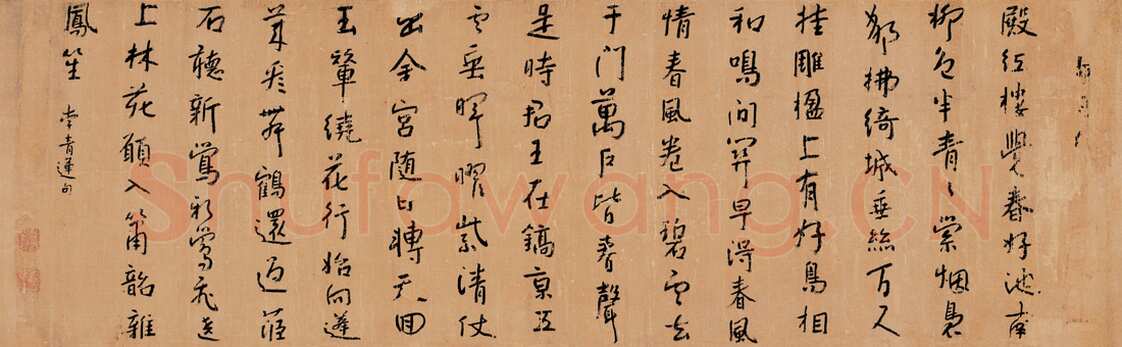 殿紅樓覺春好池南
柳色半青々縈烟裊
娜拂綺城垂絲万尺
挂雕楹上有好鳥相
和鳴间関早得春風
情春風卷入碧雲去
千門萬户皆春聲
是時君王在鎬京五
雲垂暉曜紫清仗
出金宮随日轉天回
玉輦繞花行始向蓬
莱看舞鶴還過茝
若聽新鶯新鶯飛遶
上林苑願入簫韶雜
鳳笙
李青蓮句
Shufawang.CN